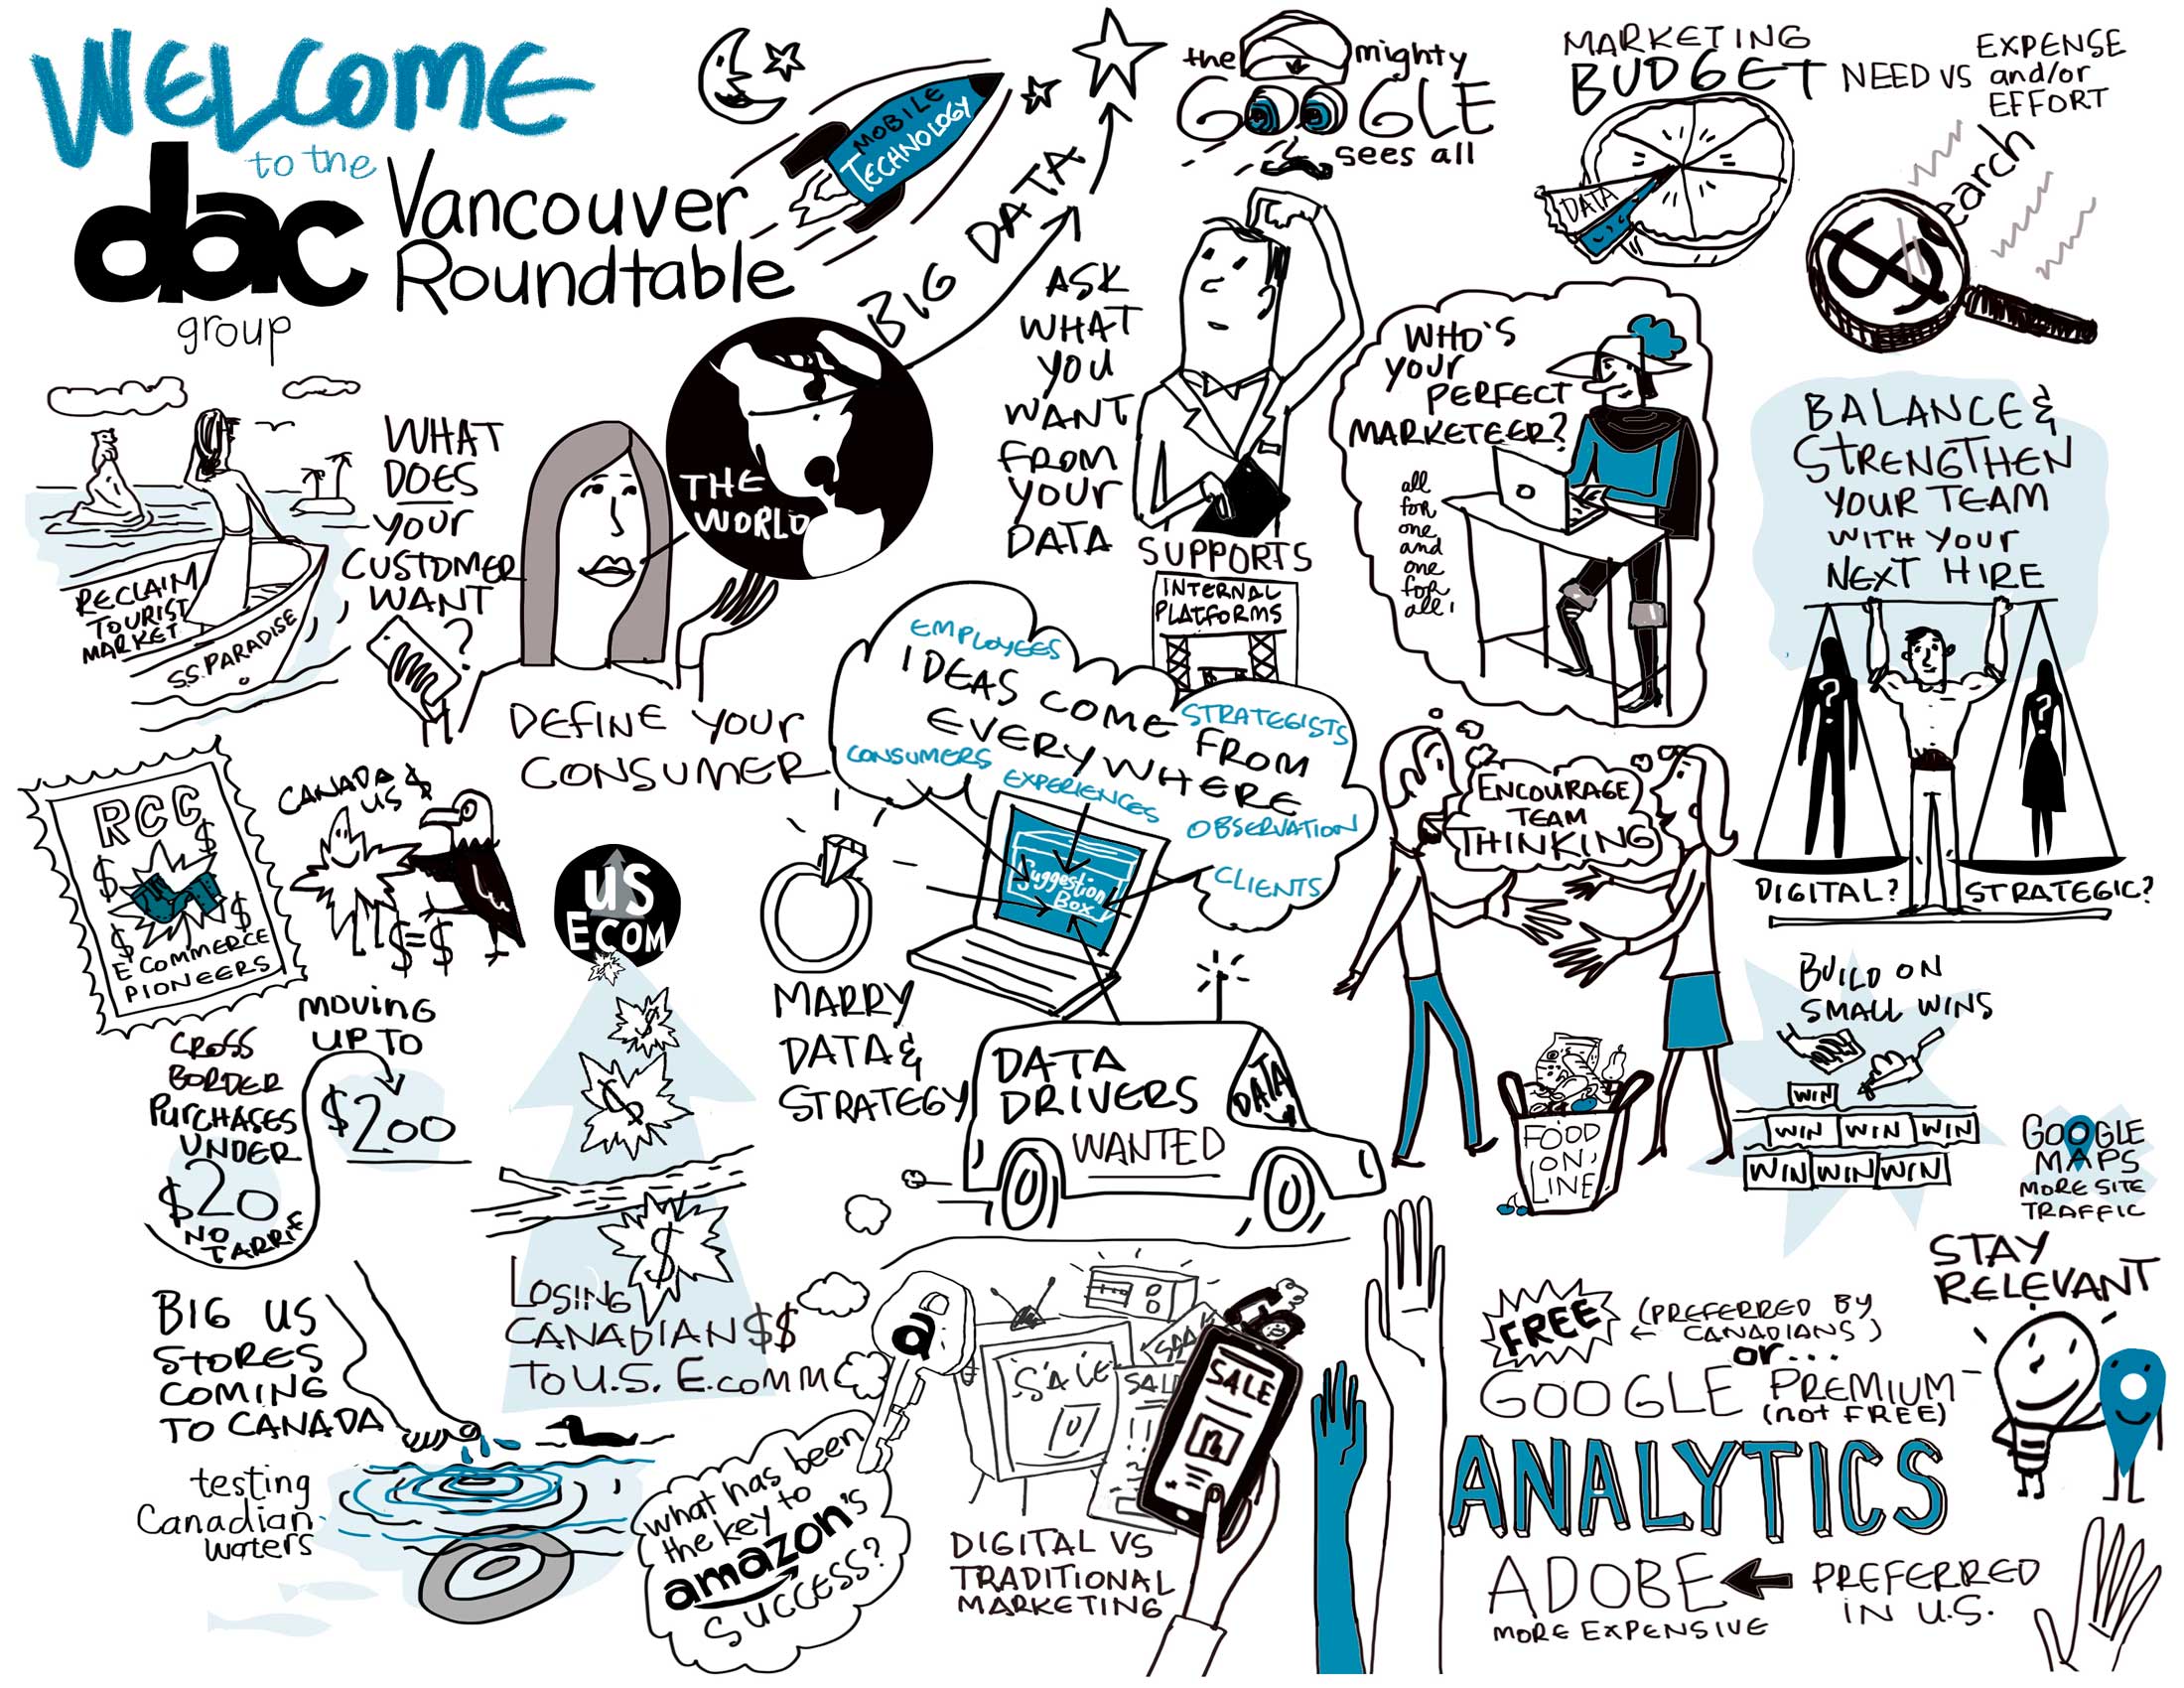 WELCOME
to the
dac
group
Vancouver
Roundtable
MOBILE
TECHNOLOGY
BIG DATA
the mighty
GOOGLE
sees all
MARKETING
BUDGET
NEED VS
EXPENSE
and/or
EFFORT
DATA
$earch
RECLAIM
TOURIST
MARKET
S.S. PARADISE
WHAT
DOES
your
CUSTOMER
WANT
?
THE
WORLD
DEFINE your
CONSUMER
ASK
WHAT
you
WANT
FROM
your
DATA
SUPPORTS
INTERNAL
PLATFORMS
WHO'S
your
PERFECT
MARKETEER?
all
for
one
and
one
for
all!
BALANCE &
STRENGTHEN
YOUR TEAM
WITH your
NEXT HIRE
?
?
DIGITAL?
STRATEGIC?
EMPLOYEES
IDEAS COME FROM
EVERYWHERE
STRATEGISTS
CONSUMERS
EXPERIENCES
OBSERVATION
CLIENTS
Suggestion
Box
ENCOURAGE
TEAM
THINKING
RCC
$
$
$
$
E COMMERCE
PIONEERS
CANADA $
US
$=$
US
ECOM
MARRY
DATA &
STRATEGY
DATA
DRIVERS
WANTED
DATA
BUILD ON
SMALL WINS
WIN
WIN WIN WIN
WIN WIN WIN
FOOD
ON
LINE
GOOGLE
MAPS
MORE SITE
TRAFFIC
CROSS
BORDER
PURCHASES
UNDER
$20
NO
TARRIF
MOVING
UP TO
$200
$
$
$
LOSING
CANADIAN $$
TO U.S. E.COMM
BIG US
STORES
COMING
TO CANADA
testing
Canadian
waters
a
what has been
the key to
amazon's
SUCCESS?
SALE
SALE
SALE
DIGITAL VS
TRADITIONAL
MARKETING
FREE
(PREFERRED BY
CANADIANS)
or...
GOOGLE
PREMIUM
(not FREE)
ANALYTICS
ADOBE
PREFERRED
IN U.S.
MORE EXPENSIVE
STAY
RELEVANT